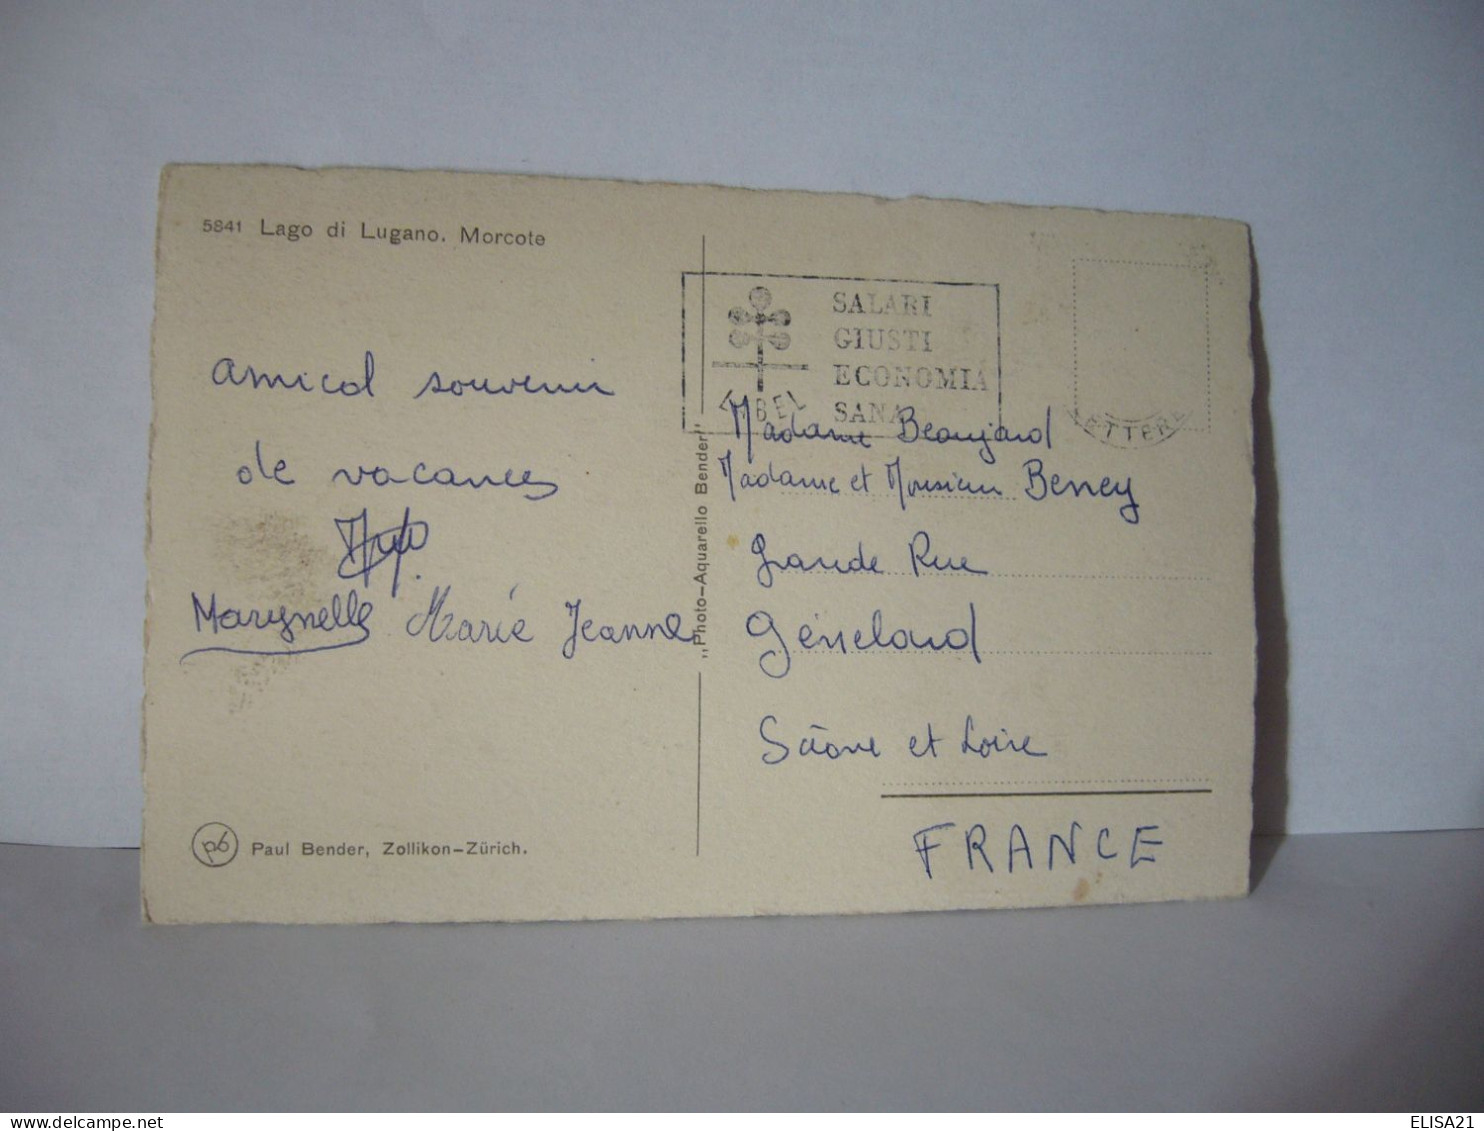 5841 Lago di Lugano. Morcote
amical souvenir
de vacances
Marynelle Marie Jeanne
pb Paul Bender, Zollikon-Zürich.
„Photo-Aquarello Bender"
SALARI
GIUSTI
ECONOMIA
SANA
LABEL
LETTERE
Madame Beaujard
Madame et Monsieur Berrey
Grande Rue
Génelard
Saône et Loire
FRANCE
delcampe.net
ELISA21